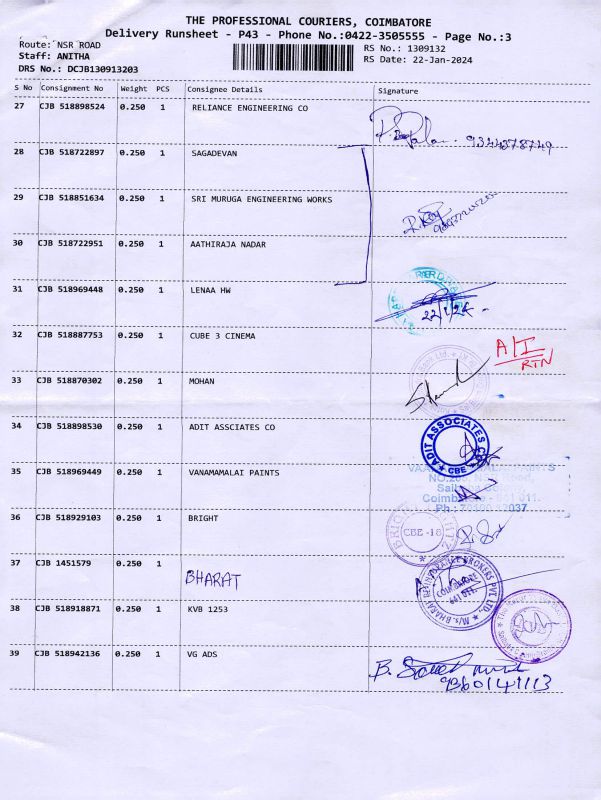 THE PROFESSIONAL COURIERS, COIMBATORE
Delivery Runsheet - P43 - Phone No.:0422-3505555 - Page No.:3
Route: NSR ROAD
RS No.: 1309132
Staff: ANITHA
RS Date: 22-Jan-2024
DRS No.: DCJB130913203
S No Consignment No Weight PCS Consignee Details Signature
27 CJB 518898524 0.250 1 RELIANCE ENGINEERING CO
9344378749
28 CJB 518722897 0.250 1 SAGADEVAN
29 CJB 518851634 0.250 1 SRI MURUGA ENGINEERING WORKS
30 CJB 518722951 0.250 1 AATHIRAJA NADAR
31 CJB 518969448 0.250 1 LENAA HW
22/1/24
32 CJB 518887753 0.250 1 CUBE 3 CINEMA
A/I
RTN
33 CJB 518870302 0.250 1 MOHAN
34 CJB 518898530 0.250 1 ADIT ASSCIATES CO
ADIT ASSOCIATES
CBE
35 CJB 518969449 0.250 1 VANAMAMALAI PAINTS
36 CJB 518929103 0.250 1 BRIGHT
CBE-18
37 CJB 1451579 0.250 1
BHARAT
COIMBATORE
641 011.
38 CJB 518918871 0.250 1 KVB 1253
39 CJB 518942136 0.250 1 VG ADS
B.